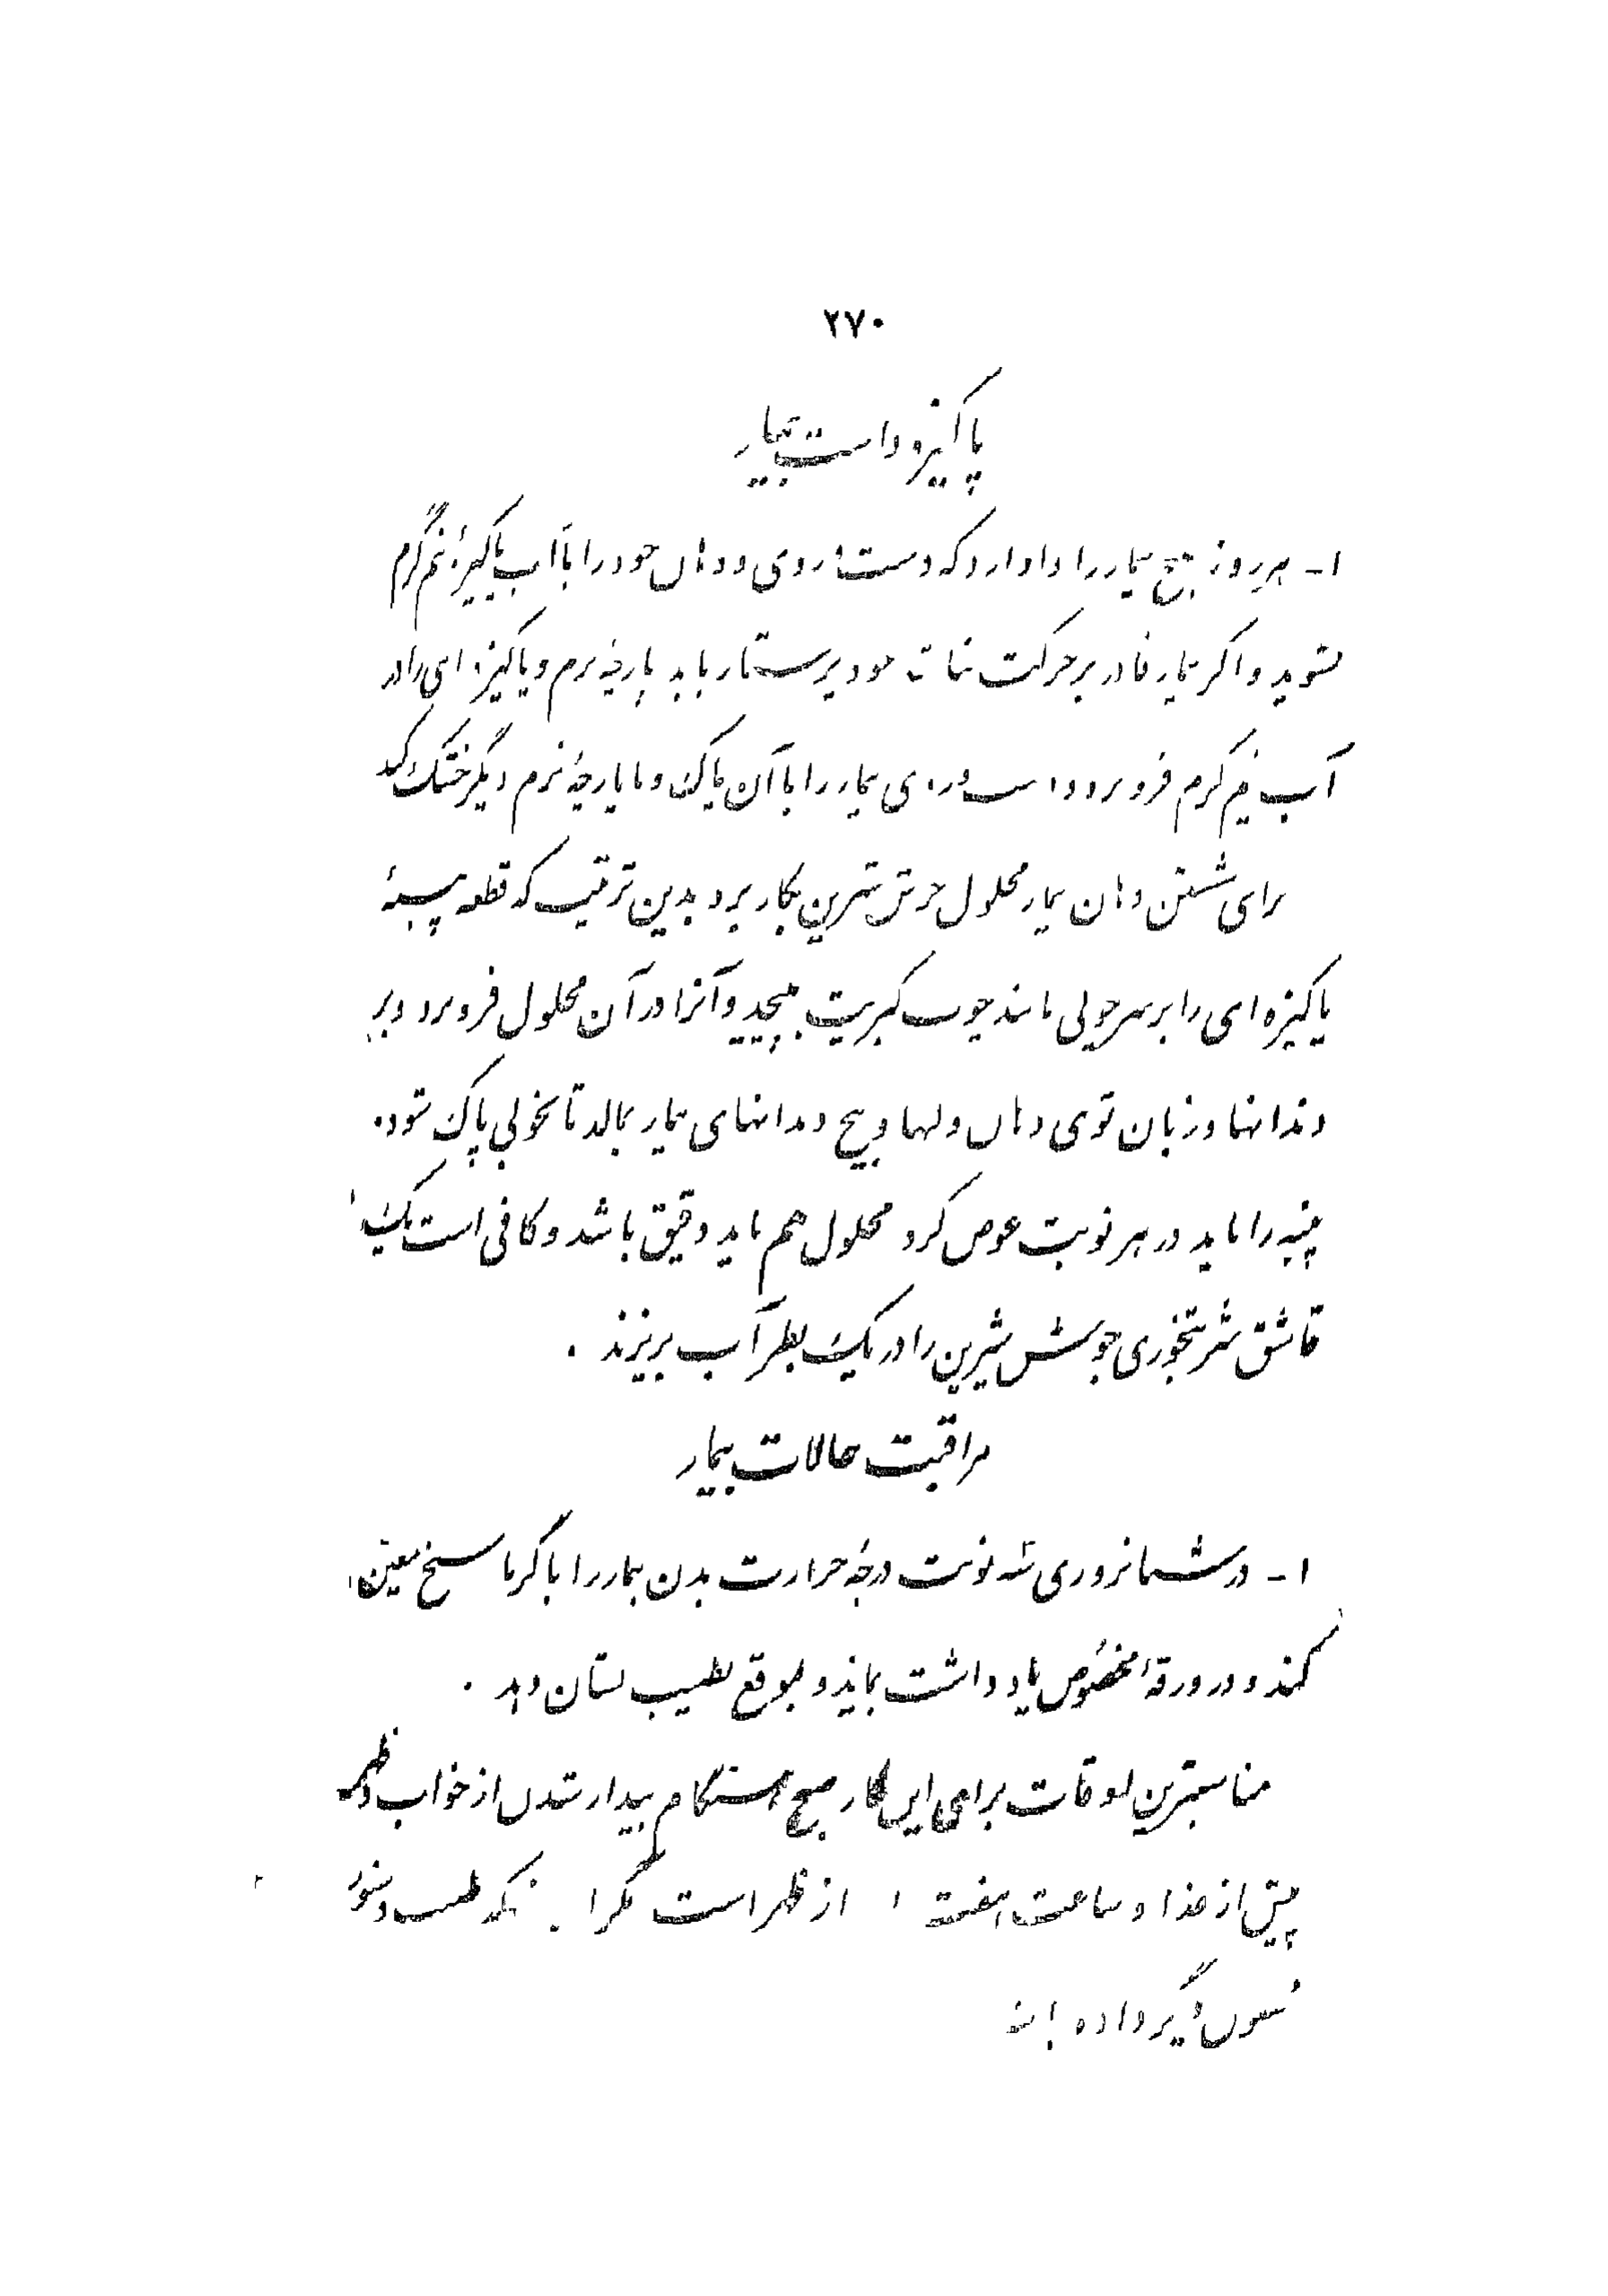 ۲۷۰
پاکیزه داشتن بیمار
۱ـ هر روز صبح بیمار را وادارد که دست و روی و دهان خود را با آب پاکیزهٔ نیم گرم
بشوید و اگر بیمار قادر بر حرکت نباشد خود پرستار باید پارچهٔ نرم و پاکیزه ای را در
آب نیم گرم فرو برد و دست و روی بیمار را با آن پاک و با پارچهٔ نرم دیگر خشک کند
برای شستن دهان بیمار محلول جوش شیرین بکار برد بدین ترتیب که قطعه پنبهٔ
پاکیزه ای را بر سر چوبی مانند چوب کبریت بپیچید و آنرا در آن محلول فرو برد و بر
دندانها و زبان توی دهان و لبها و بیخ دندانهای بیمار بمالد تا بخوبی پاک شود.
پنبه را باید در هر نوبت عوض کرد محلول هم باید رقیق باشد و کافی است یک
قاشق شربتخوری جوش شیرین را در یک بطر آب بریزند .
مراقبت حالات بیمار
۱ ـ در شبانروزی سه نوبت درجهٔ حرارت بدن بیمار را با گرماسنج معین
کند و در ورقهٔ مخصوص یادداشت نماید و بموقع بطبیب نشان دهد .
مناسبترین اوقات برای این کار صبح هنگام بیدار شدن از خواب و ظهر
پیش از غذا و ساعت هفت از ظهر است مگر اینکه طبیب دستور
دیگر داده باشد